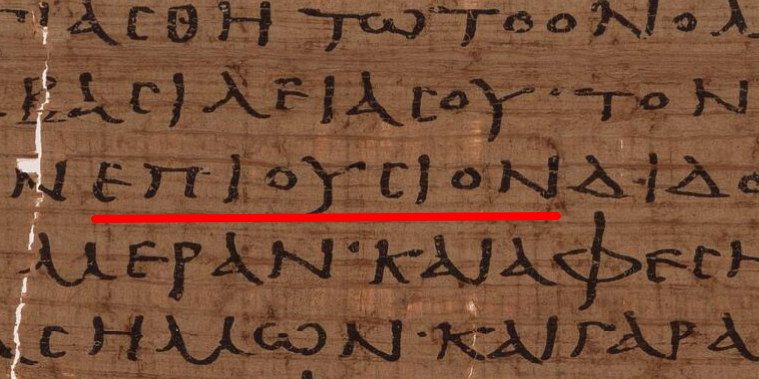 ΙΑCΘΗΤΩΤΟΟΝΟΜ
ΒΑCΙΛΕΙΑCΟΥ·ΤΟΝ
ΝΕΠΙΟΥCΙΟΝΔΙΔΟ
ΜΕΡΑΝ·ΚΑΙΑΦΕCΗ
ΑCΗΜΩΝ·ΚΑΙΓΑΡΑ